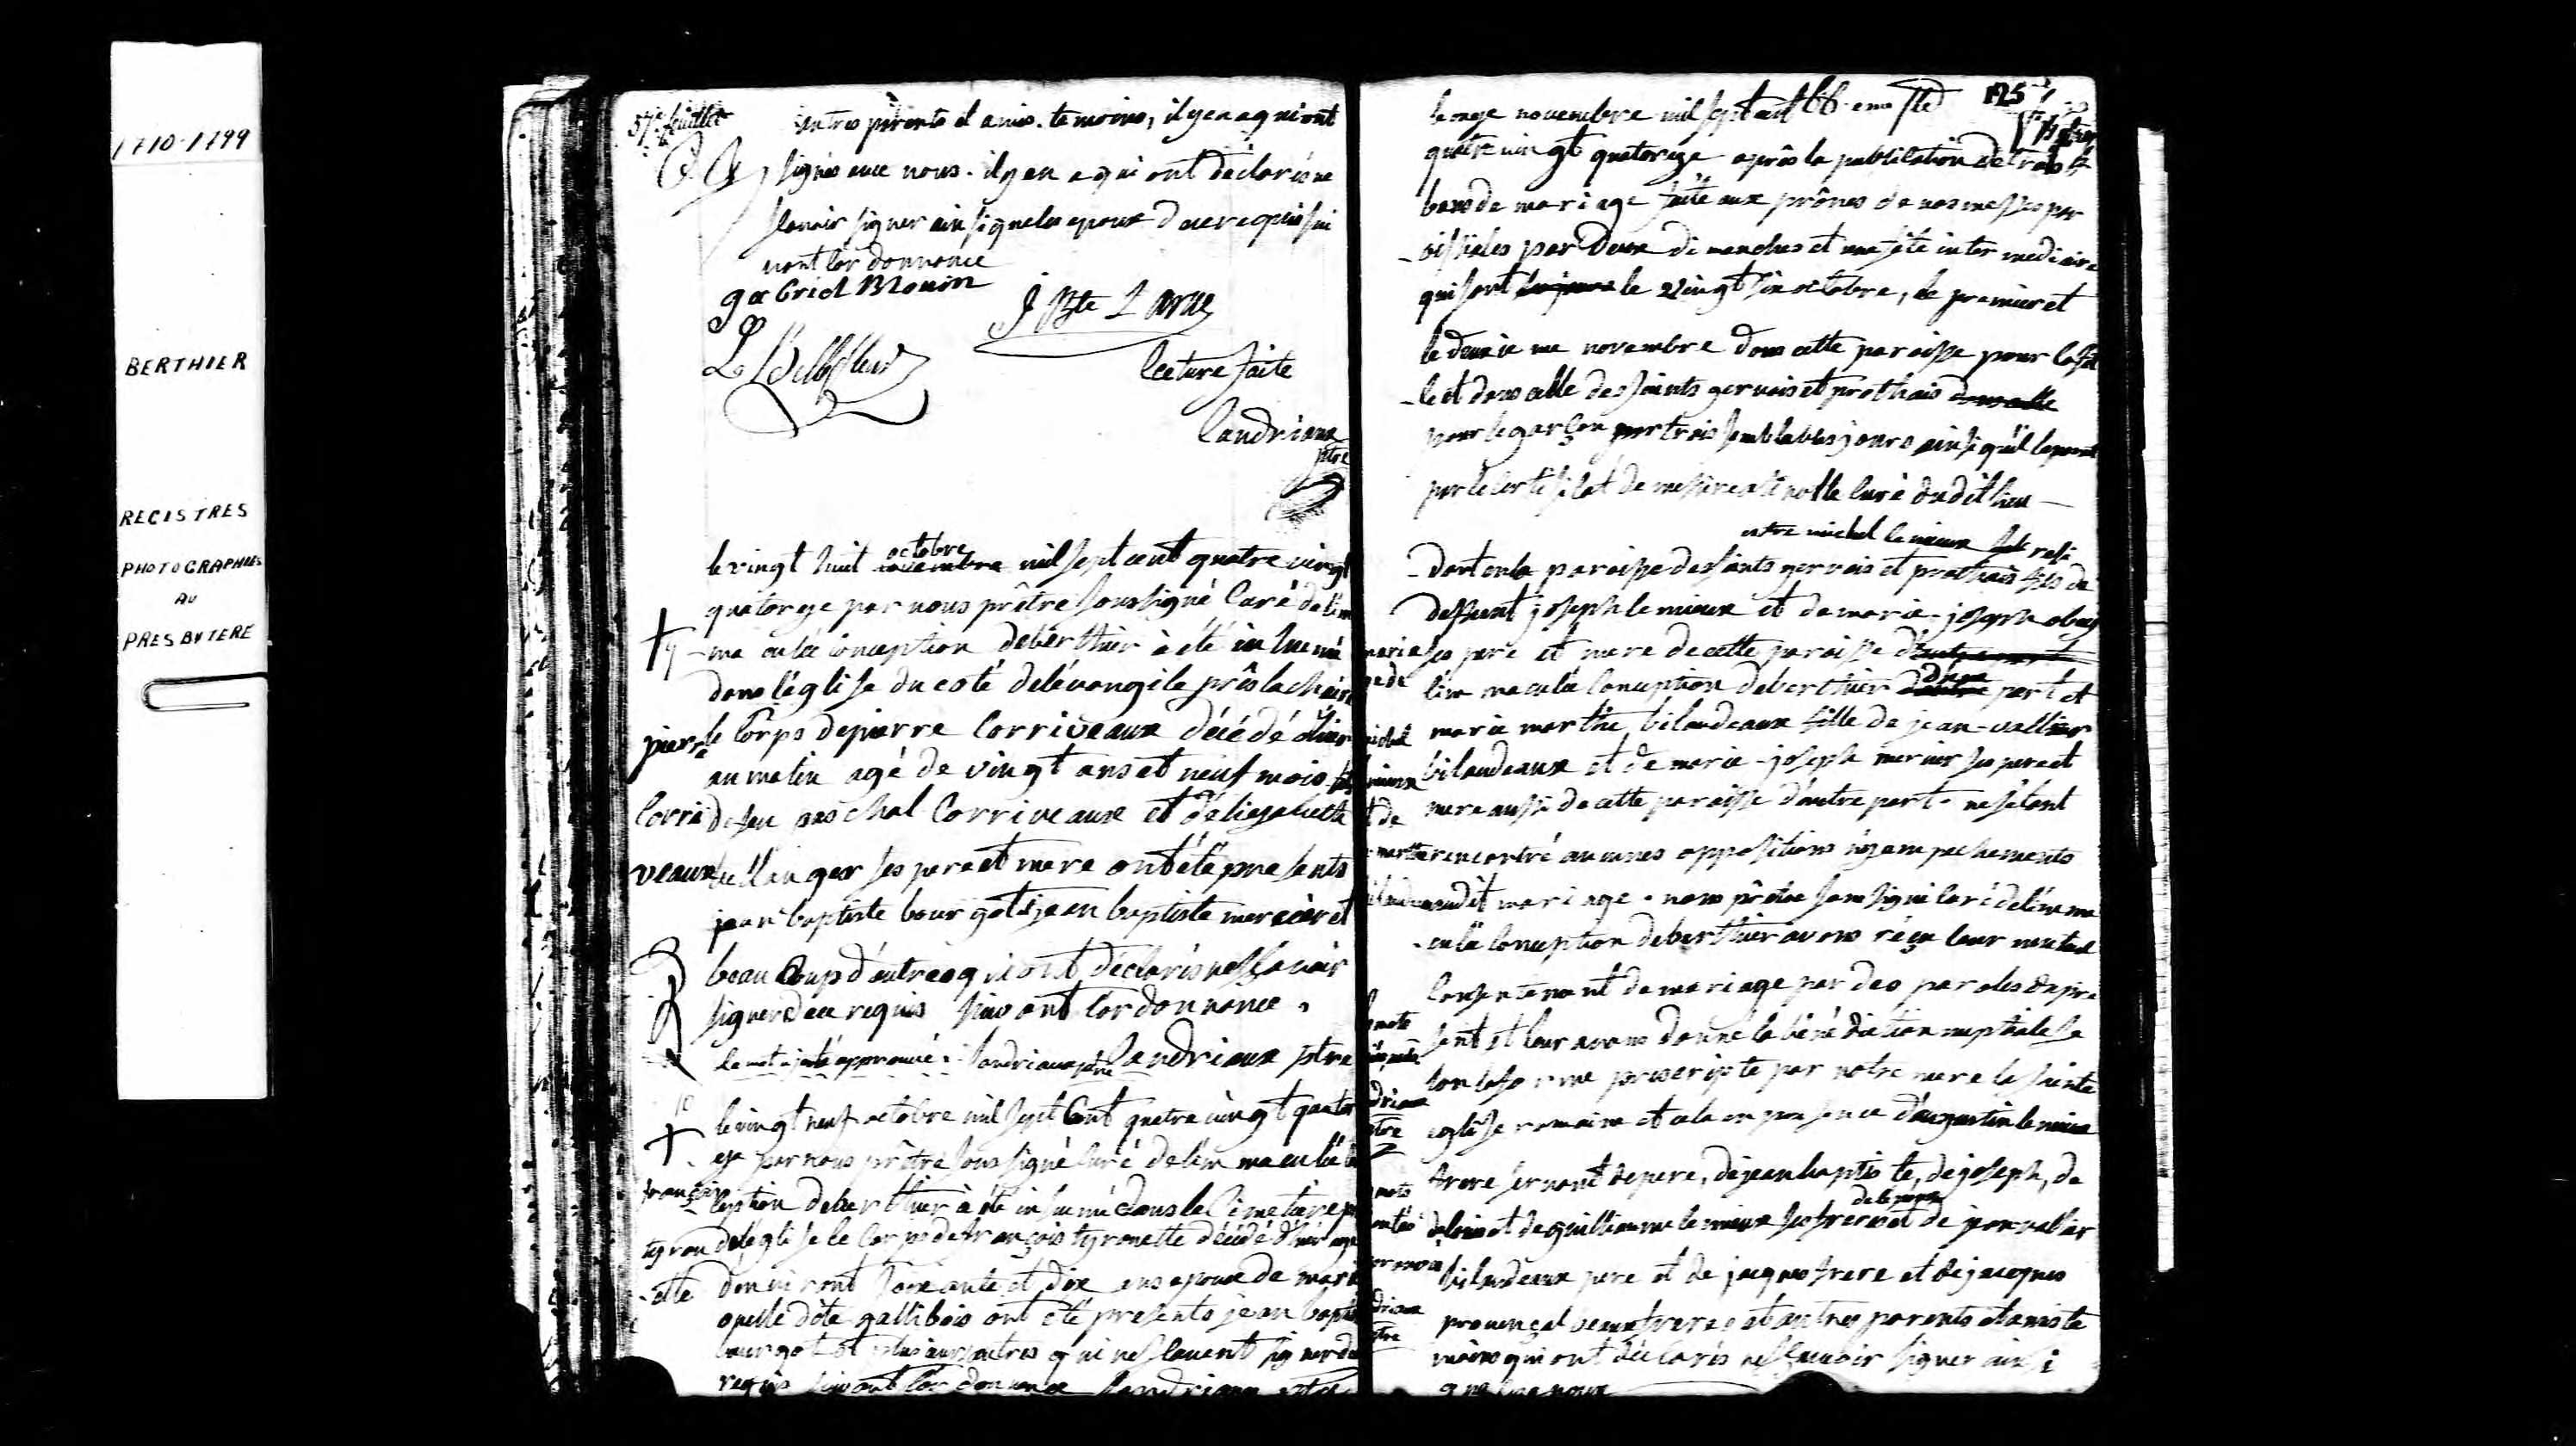 1710-1799
BERTHIER
REGISTRES
PHOTOGRAPHIES
AU
PRESBYTERE
57e feuillet
autres parents et amis temoins, il y en a qui ont
signés avec nous. il y en a qui ont déclarés ne
sçavoir signer ainsi que les epoux de ce requis sui
vant lordonnance
gabriel Blouin
J Bte Larue
L Bellefleur
lecture faite
landriaux
ptre
le vingt huit novembre mil sept cent quatre vingt
octobre
quatorze par nous prêtre soussigné Curé de lim
ma culée Conception de berthier à été inhumé
dans léglise du coté de lévangile près la chaire
le Corps de pierre Corriveaux décédé dhier
au matin agé de vingt ans et neuf mois fils
de feu paschal Corriveaux et délizabeth
boullanger ses pere et mere ont été presents
jean baptiste bourgot jean baptiste mercier et
beau Coup dautres qui ont déclarés ne sçavoir
signer de ce requis suivant lordonnance.
le mot ajouté approuvé landriaux ptre landriaux ptre
pierre
Corri
veaux
le vingt neuf octobre mil sept Cent quatre vingt quator
ze par nous prêtre soussigné Curé de lim maculée
ception de berthier à été inhumé dans le Cimetiere
de léglise le Corps de françois tyronette décédé dhier agé
denviront soixante et dix ans epoux de marie
apellé dite gallibois ont été presents jean bapti
bourgot et plusieurs autres qui ne sçavent signer de
requis suivant lordonnance landriaux ptre
françois
tyron
-ette
125
le onze novembre mil sept cent
quatre vingt quatorze après la publication de trois
bans de mariage faite aux prônes de nos messes par
-oissiales par deux dimanches et une fête intermediaire
qui sont le vingt six octobre, le premier et
le deuxieme novembre dans cette paroisse pour la fil
-le et dans celle des saints gervais et prothais dans celle
pour le garçon par trois semblables jours ainsi quil
par le certificat de messire curé dudit lieu
entre michel lemieux resi
-dant en la paroisse des saints gervais et prothais fils de
deffunt joseph lemieux et de marie-joseph
ses pere et mere de cette paroisse
lim maculée Conception de berthier d'une part et
marie marthe bilaudeaux fille de jean-vallier
bilaudeaux et de marie-joseph mercier ses pere et
mere aussi de cette paroisse dautre part. ne sétant
rencontré aucunes oppositions ny empechements
audit mariage. nous prêtre soussigné Curé de lim ma
-culée Conception de berthier avons reçu leur mutuel
Consentement de mariage par des paroles de pre
sent et leur avons donné la bénédiction nuptiale se
lon la forme prescripte par notre mere la sainte
eglise romaine et cela en presence d'augustin lemieux
frere servant de pere, de jean baptiste, de joseph, de
et de guilliaume lemieux ses freres et de jean vallier
bilaudeaux pere et de jacques frere et de jacques
provençal beaux freres et autres parents et amis te
moins qui ont déclarés ne sçavoir signer ainsi
que les epoux